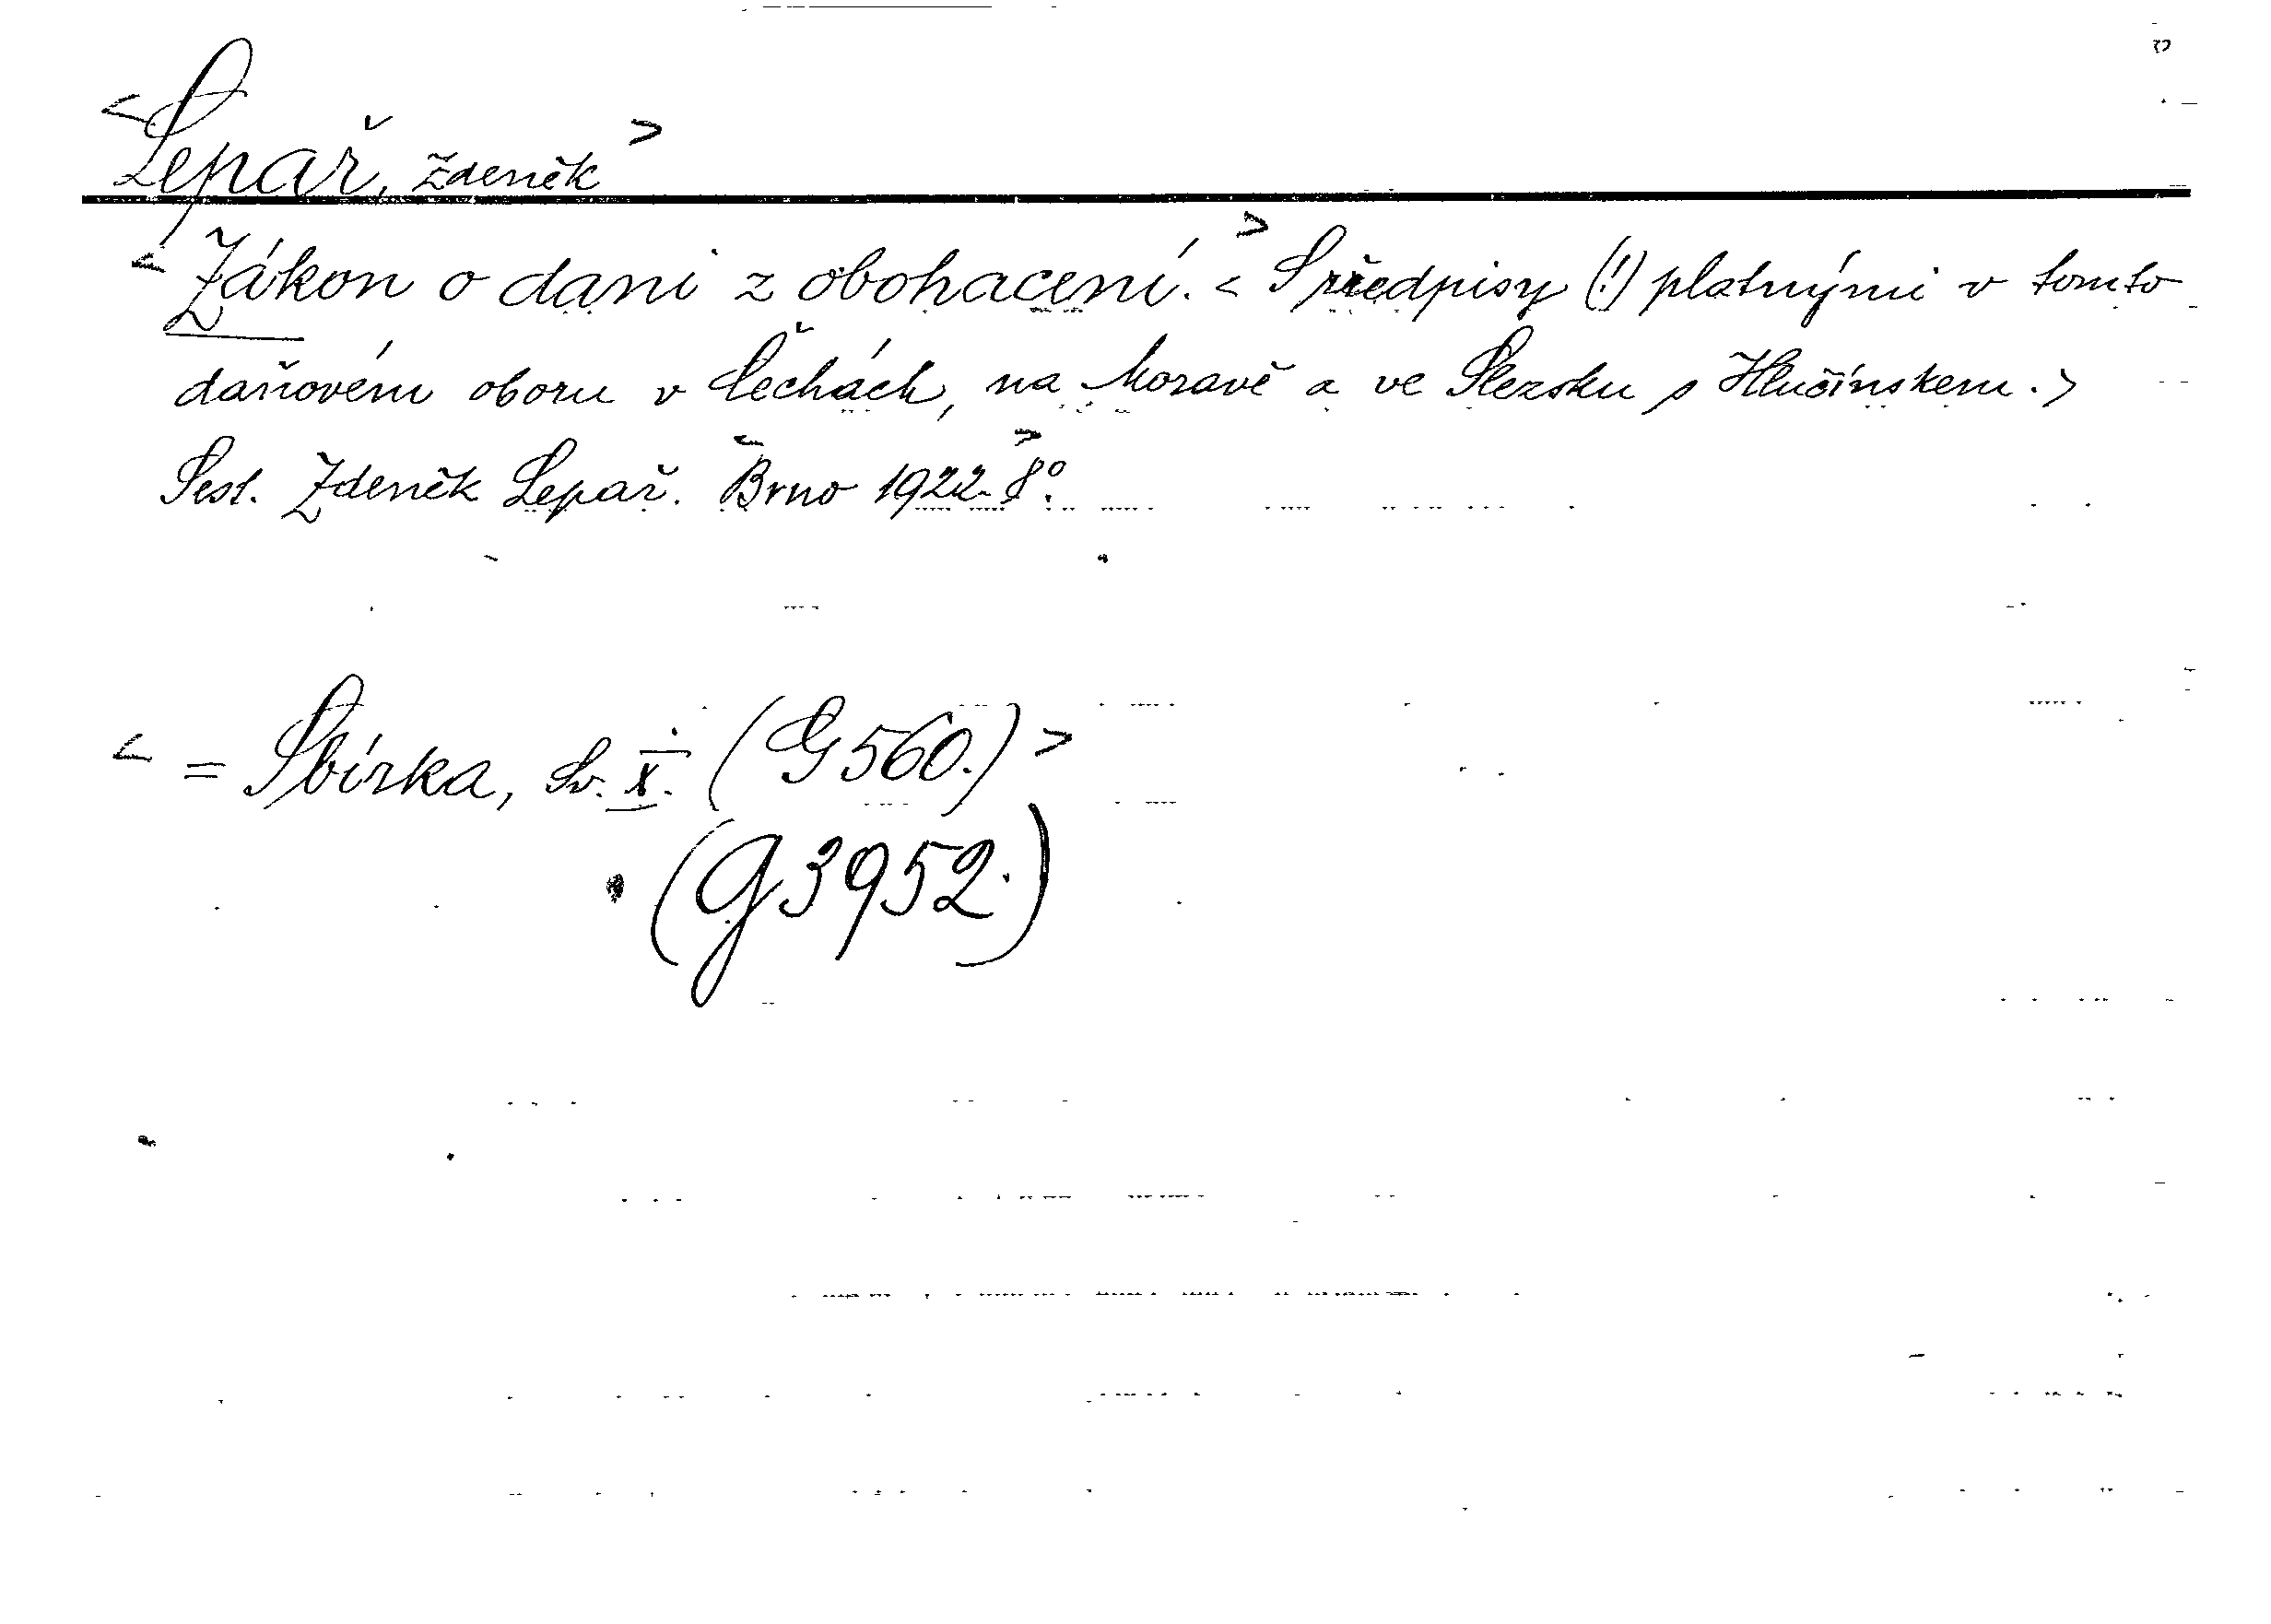 <Lepař, Zdeněk>
<Zákon o dani z obohacení.> <S předpisy (!) platnými v tomto
daňovém oboru v Čechách, na Moravě a ve Slezsku s Hlučínskem.>
Sest. Zdeněk Lepař. <Brno 1922.> 8°.
< = Sbírka, sv. X. (G 560.)>
(G 3952.)